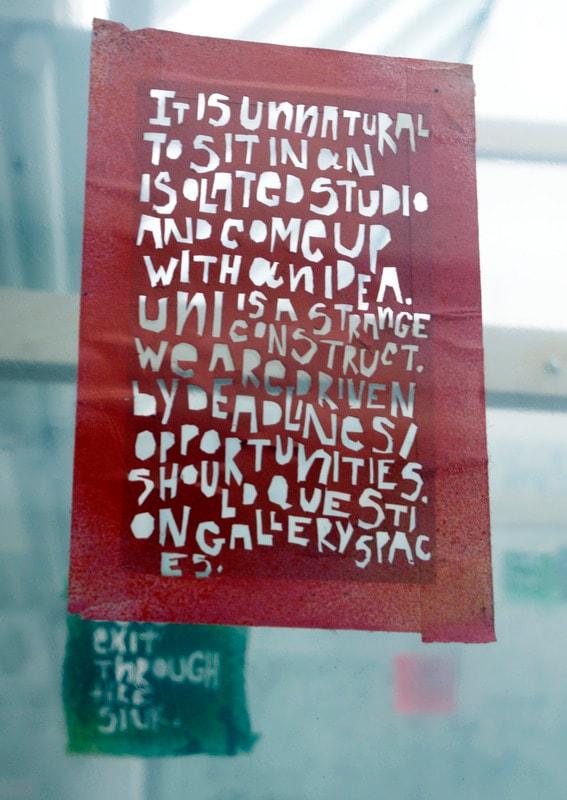 IT IS UNNATURAL
TO SIT IN aN
ISOLATED STUDIO
AND COME UP
WITH aN IDEA.
UNI IS A STRANGE
CONSTRUCT.
WE ARE DRIVEN
bY DEADLINES/
OPPORTUNITIES.
SHOULD QUESTI
ON GALLERY SPAC
ES.
exit
THROUGH